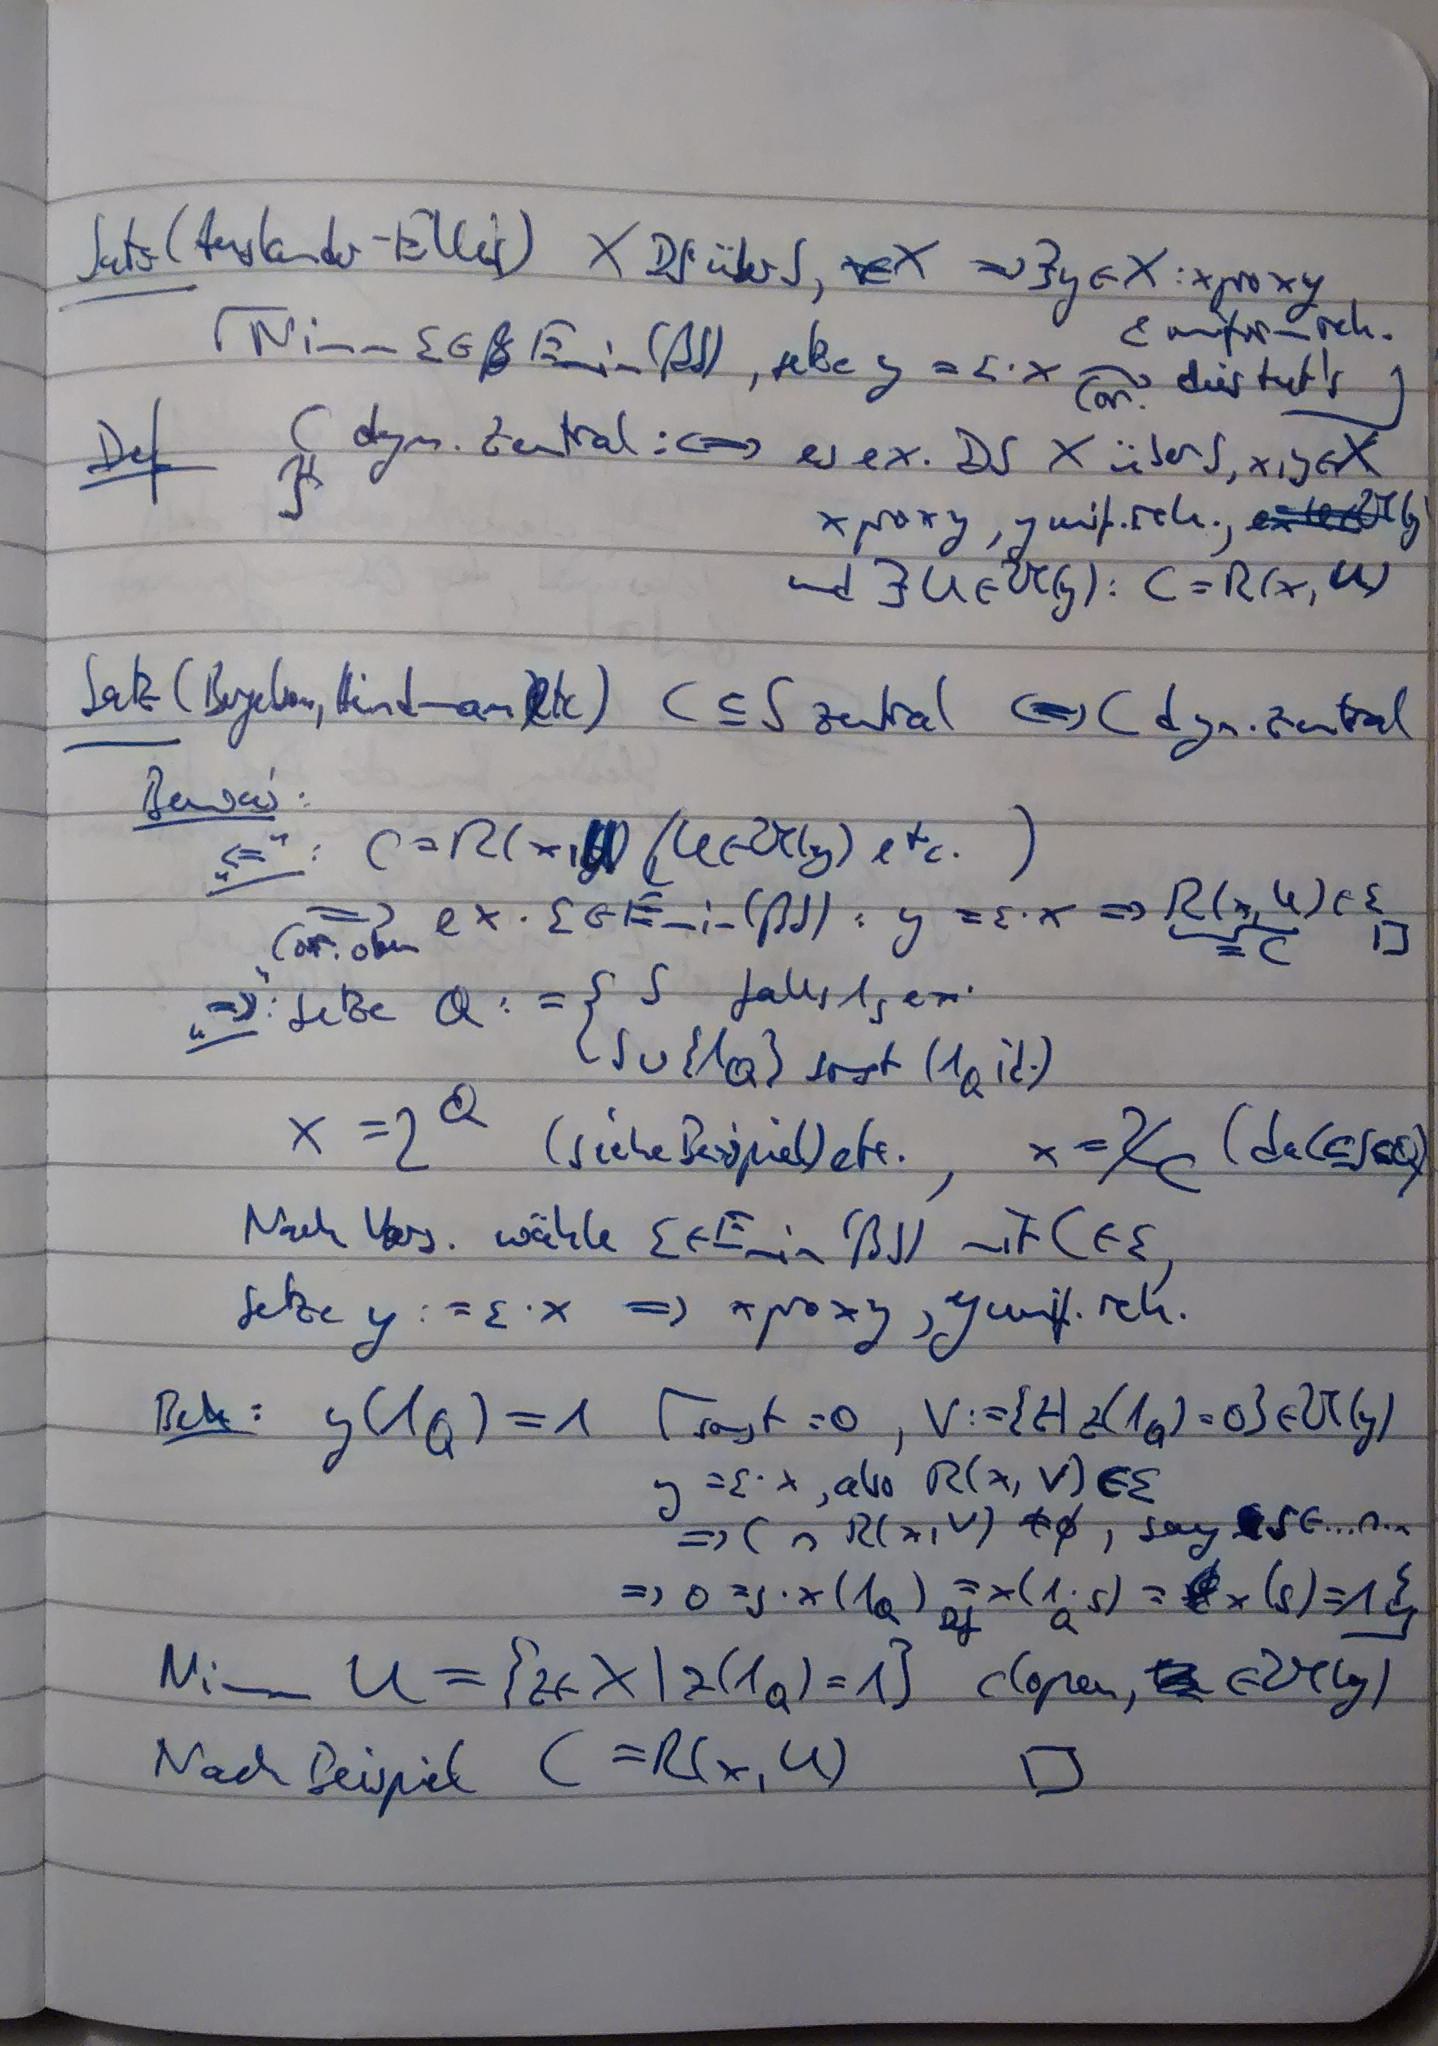 Satz (Auslander-Ellis) X DS über S, x∈X ⇒ ∃y∈X: x prox y
& unif. rek.
⌈Nimm ε∈ E_min(βS), setze y = ε·x Cor. dies tut's⌋
Def C dyn. zentral :⇔ es ex. DS X über S, x,y∈X
⊆ S x prox y, y unif. rek.,
und ∃ U∈𝔘(y): C = R(x, U)
Satz (Bergelson, Hindman etc) C ⊆ S zentral ⇔ C dyn. zentral
Beweis:
„⇐“: C = R(x, U) (U∈𝔘(y) etc. )
⇒ Cor. oben ex. ε∈E_min(βS): y = ε·x ⇒ R(x, U)∈ε □
= C
„⇒“: Setze Q := { S falls 1_S ex.
S∪{1_Q} sonst (1_Q id.)
X = 2^Q (siehe Beispiel) etc., x = χ_C (da C⊆S⊆Q)
Nach Vors. wähle ε∈E_min(βS) mit C∈ε,
Setze y := ε·x ⇒ x prox y, y unif. rek.
Beh: y(1_Q) = 1 ⌈sonst = 0, V := {z| z(1_Q) = 0}∈𝔘(y)
y = ε·x, also R(x, V)∈ε
⇒ C ∩ R(x, V) ≠ ∅, say s∈...∩..
⇒ 0 = s·x(1_Q) =_Def x(1_Q·s) = x(s) = 1 ↯⌋
Nimm U = {z∈X | z(1_Q) = 1} clopen, ∈𝔘(y)
Nach Beispiel C = R(x, U) □